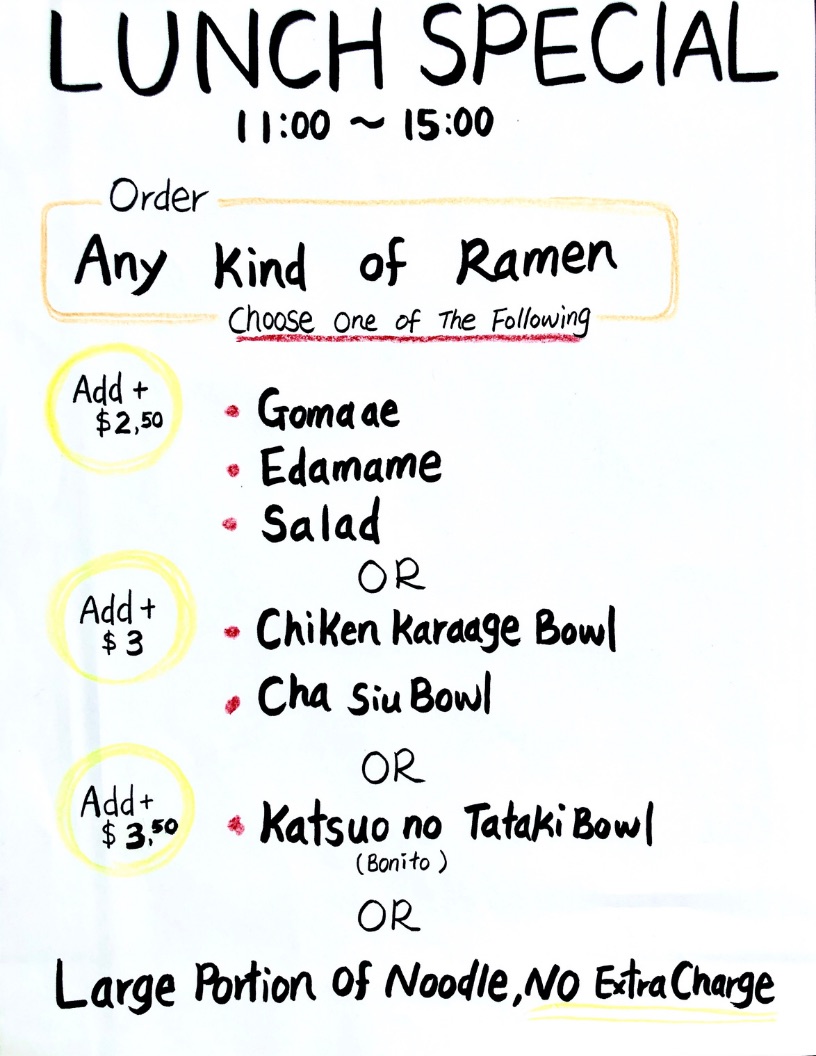 LUNCH SPECIAL
11:00 ~ 15:00
Order
Any Kind of Ramen
Choose One of The Following
Add +
$2,50
• Gomaae
• Edamame
• Salad
OR
Add +
$3
• Chiken Karaage Bowl
• Cha Siu Bowl
OR
Add +
$3,50
• Katsuo no Tataki Bowl
(Bonito)
OR
Large Portion Of Noodle, NO Extra Charge